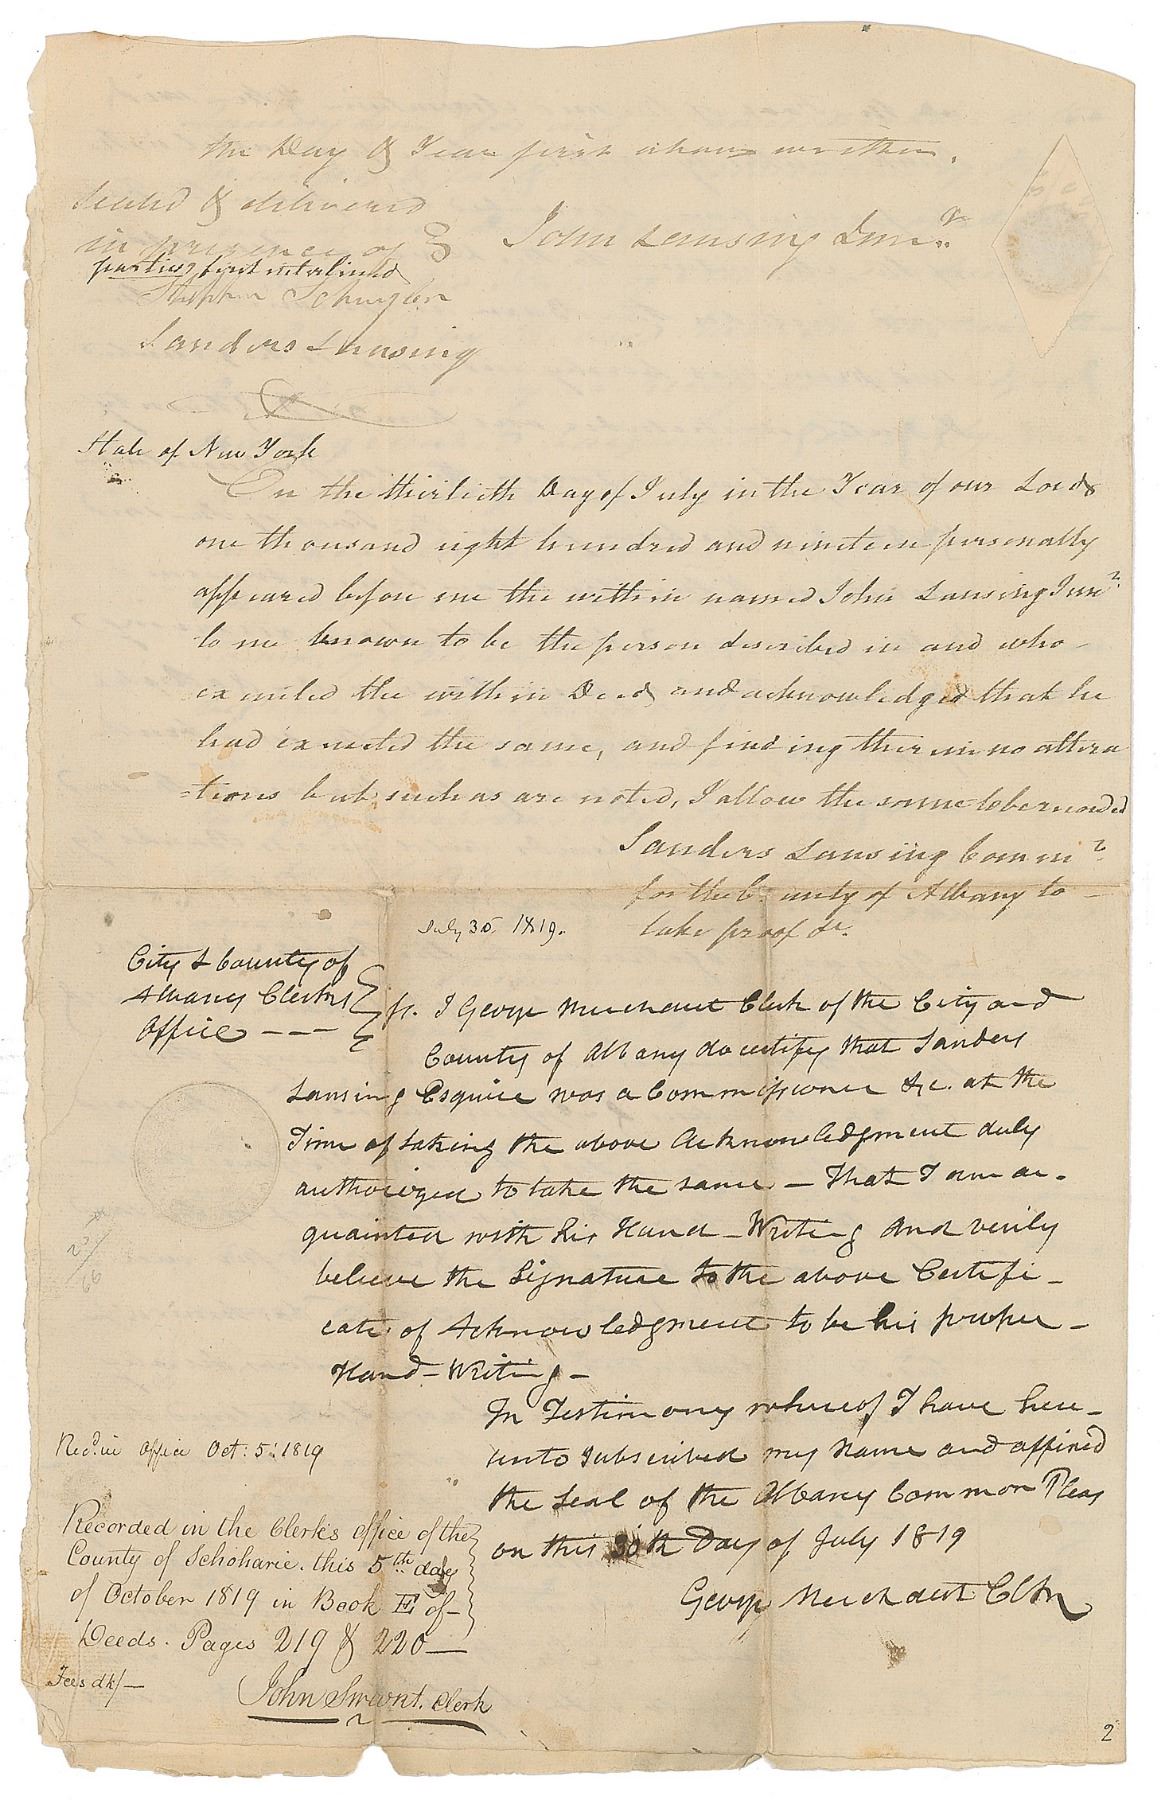 the Day & Year first above written.
Sealed & delivered
in presence of
parties first interlined
Stephen Schuyler
Sanders Lansing
John Lansing Junr.
State of New York
On the thirtieth Day of July in the Year of our Lord
one thousand eight hundred and nineteen personally
appeared before me the within named John Lansing Junr
to me known to be the person described in and who
executed the within Deed and acknowledged that he
had executed the same, and finding therein no altera
=tions but such as are noted, I allow the same to be recorded
Sanders Lansing Commr
for the County of Albany to
take proof &c.
July 30, 1819.
City & County of
Albany Clerks
Office - - -
ss. I George Merchant Clerk of the City and
County of Albany do certify that Sanders
Lansing Esquire was a Commissioner &c. at the
Time of taking the above Acknowledgment duly
authorized to take the same — That I am ac-
quainted with his Hand-Writing And verily
believe the Signature to the above Certifi-
cate of Acknowledgment to be his proper-
Hand-Writing-
In Testimony whereof I have here-
unto subscribed my Name and affixed
the Seal of the Albany Common Pleas
on this 30th Day of July 1819
George Merchant Clk
Recd. in office Oct: 5: 1819
Recorded in the Clerk's office of the
County of Schoharie. this 5th day
of October 1819 in Book E of-
Deeds. Pages 219 & 220—
John Swart. Clerk
2